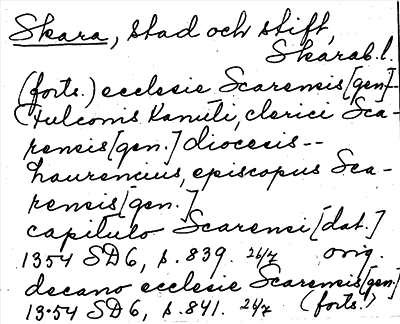 Skara, stad och stift,
Skarab.l.
(forts.) ecclesie Scarensis [gen]--
Fulcoms Kanuti, clerici Sca-
rensis [gen.] diocesis--
Laurencius, episcopus Sca-
rensis [gen.]
capitulo Scarensi [dat.]
1354 SD6, s. 839. 26/7 orig.
decano ecclesie Scarensis [gen]
1354 SD6, s. 841. 26/7 (forts.)